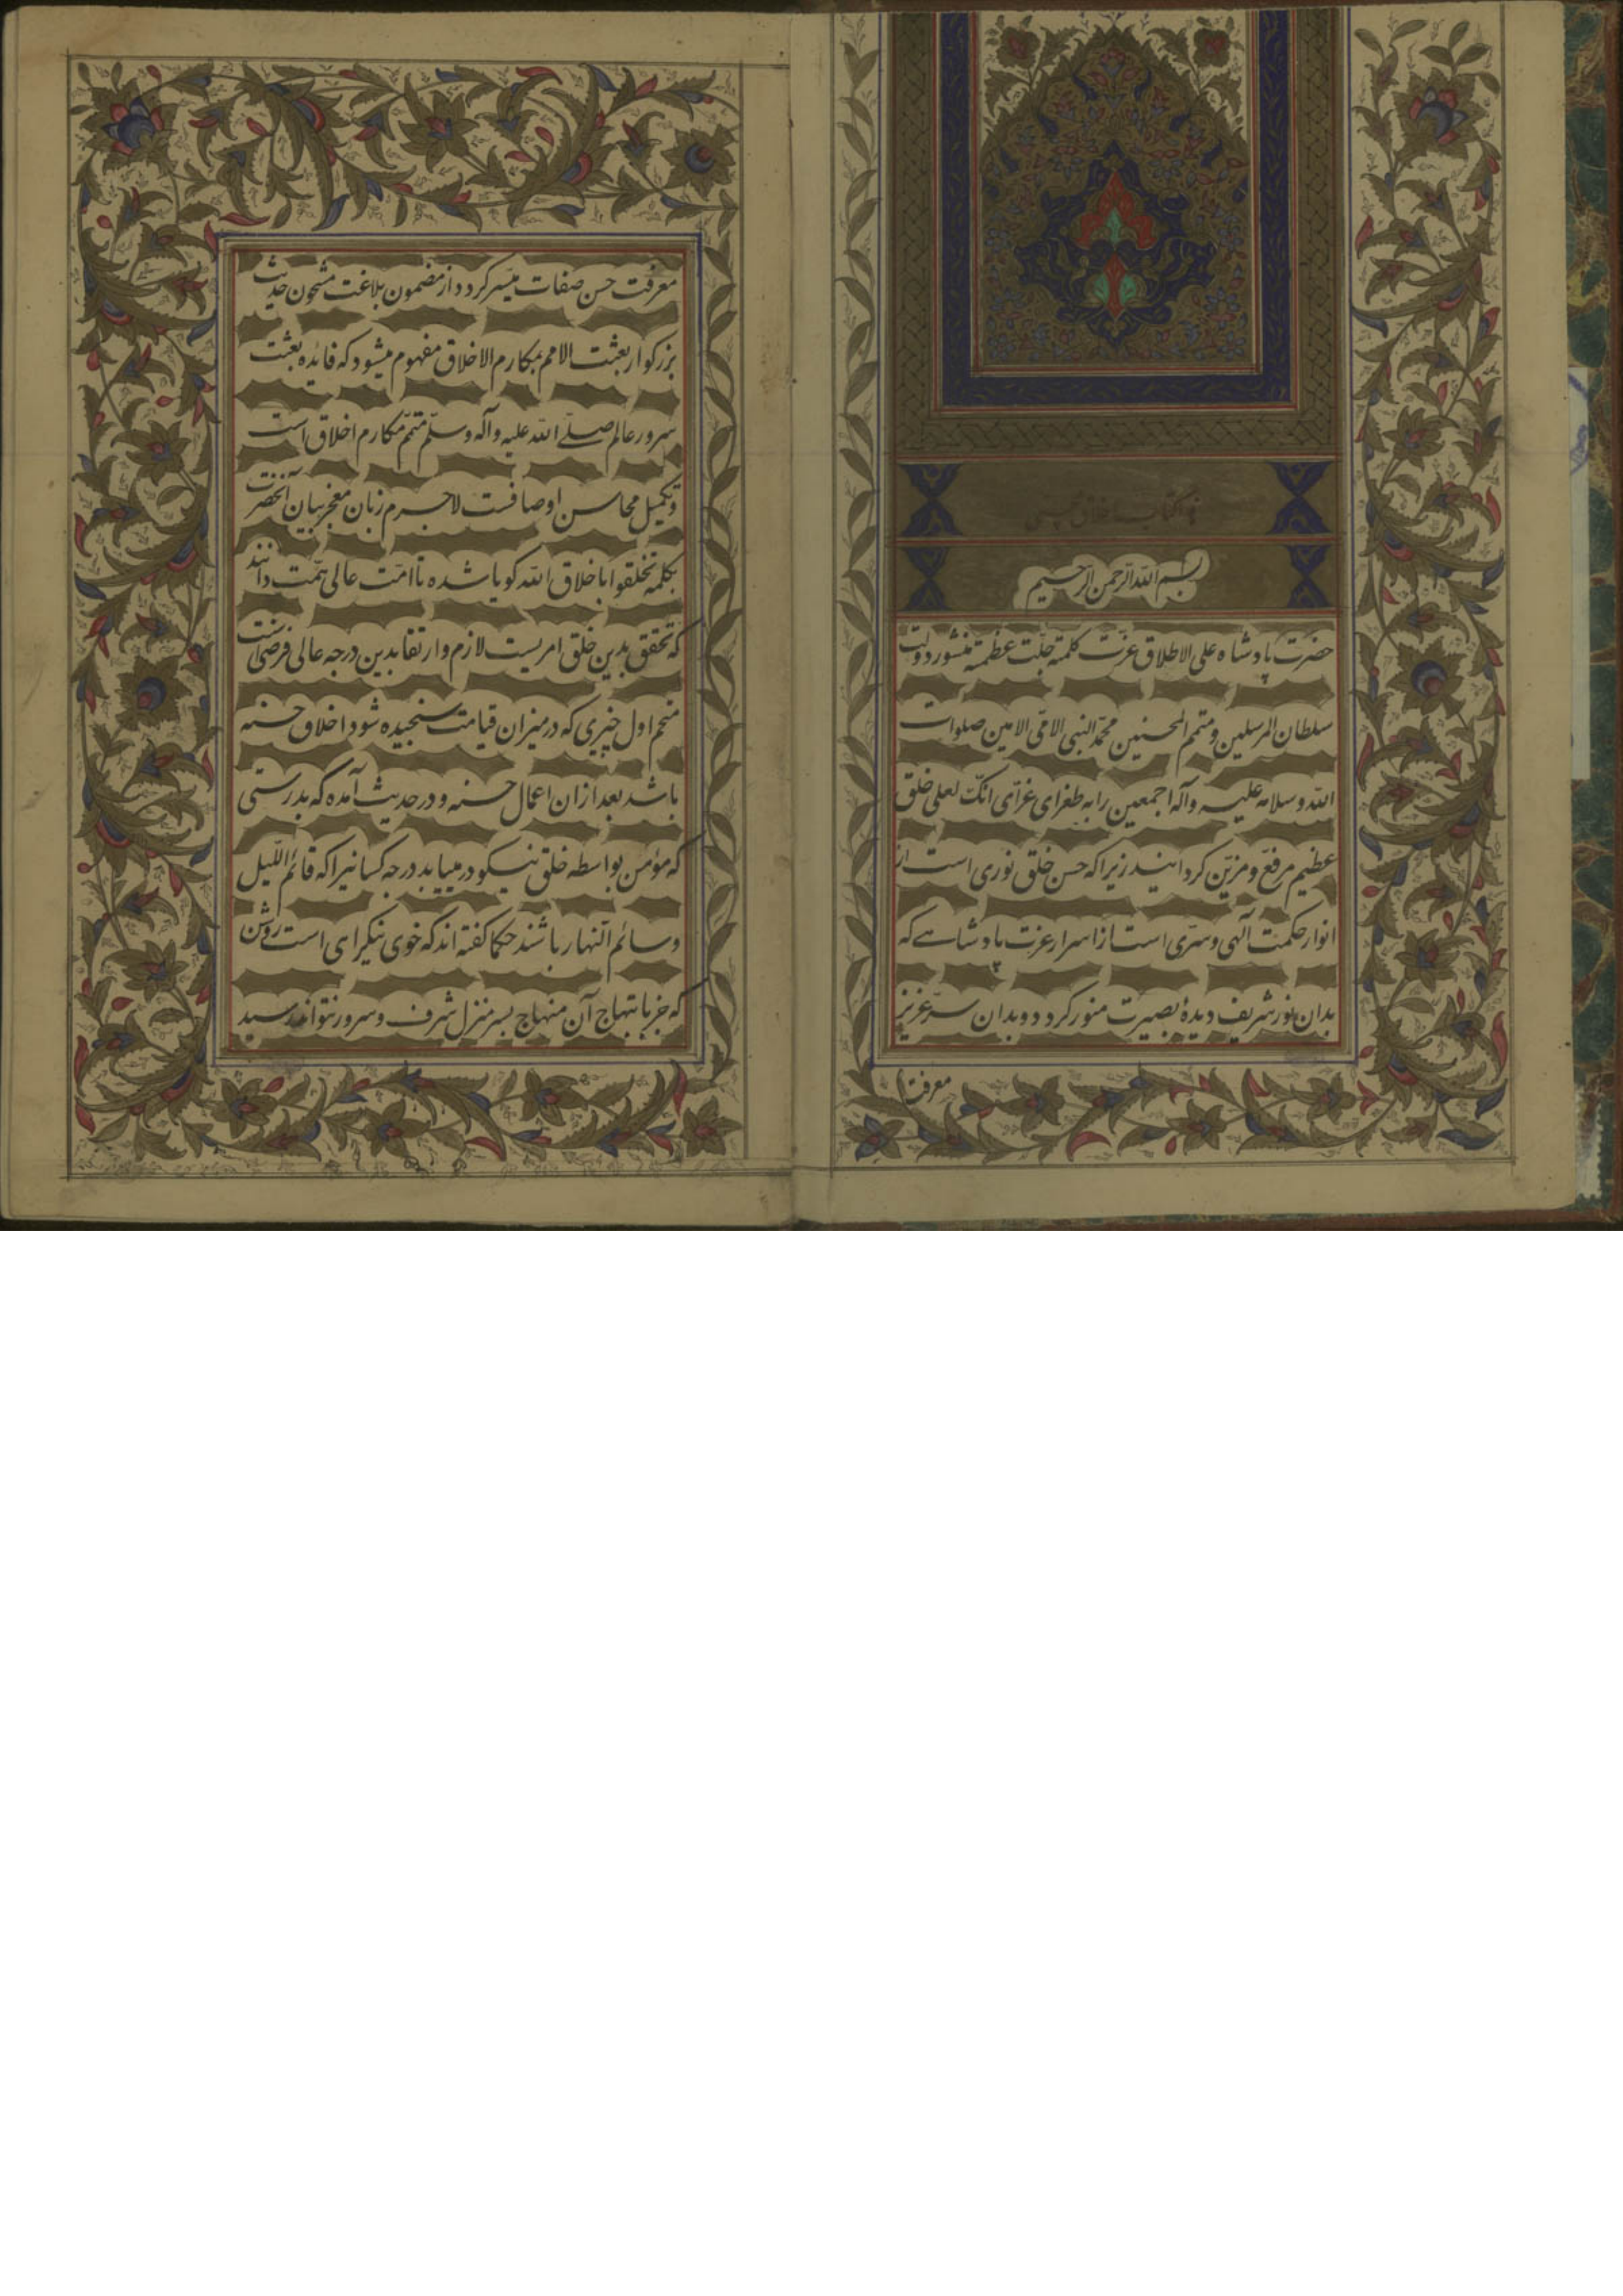 هذا کتاب اخلاق محسنی
بسم الله الرحمن الرحیم
حضرت پادشاه علی الاطلاق عزت کلمته جلت عظمته منشور دولت
سلطان المرسلین و متمم المحسنین محمد النبی الامی الامین صلوات
الله و سلامه علیه و آله اجمعین را به طغرای غرای انک لعلی خلق
عظیم مرفع و مزین کردانید زیرا که حسن خلق نوری است از
انوار حکمت آلهی و سری است از اسرار عزت پادشاهی که
بدان نور شریف دیدهٔ بصیرت منور کردد و بدان سر عزیز
معرفت
معرفت حسن صفات میسر کردد و از مضمون بلاغت مشحون حدیث
بزرکوار بعثت الامم بمکارم الاخلاق مفهوم میشود که فائده بعثت
سرور عالم صلی الله علیه و آله و سلم متمم مکارم اخلاق است
و تکمیل محاسن اوصافست لاجرم زبان معجز بیان آنحضرت
بکلمه تخلقوا باخلاق الله کویا شده تا امت عالی همت دانند
که تحقق بدین خلق امریست لازم و ارتقا بدین درجه عالی فرضی است
متحم اول چیزی که در میزان قیامت سنجیده شود اخلاق حسنه
باشد بعد از ان اعمال حسنه و در حدیث آمده که بدرستی
که مؤمن بواسطه خلق نیکو در مییابد درجه کسانیرا که قائم اللیل
و سائم النهار باشند حکما کفته اند که خوی نیک رای است روشن
که جز بابتهاج آن منهاج بسر منزل شرف و سرور نتواند رسید